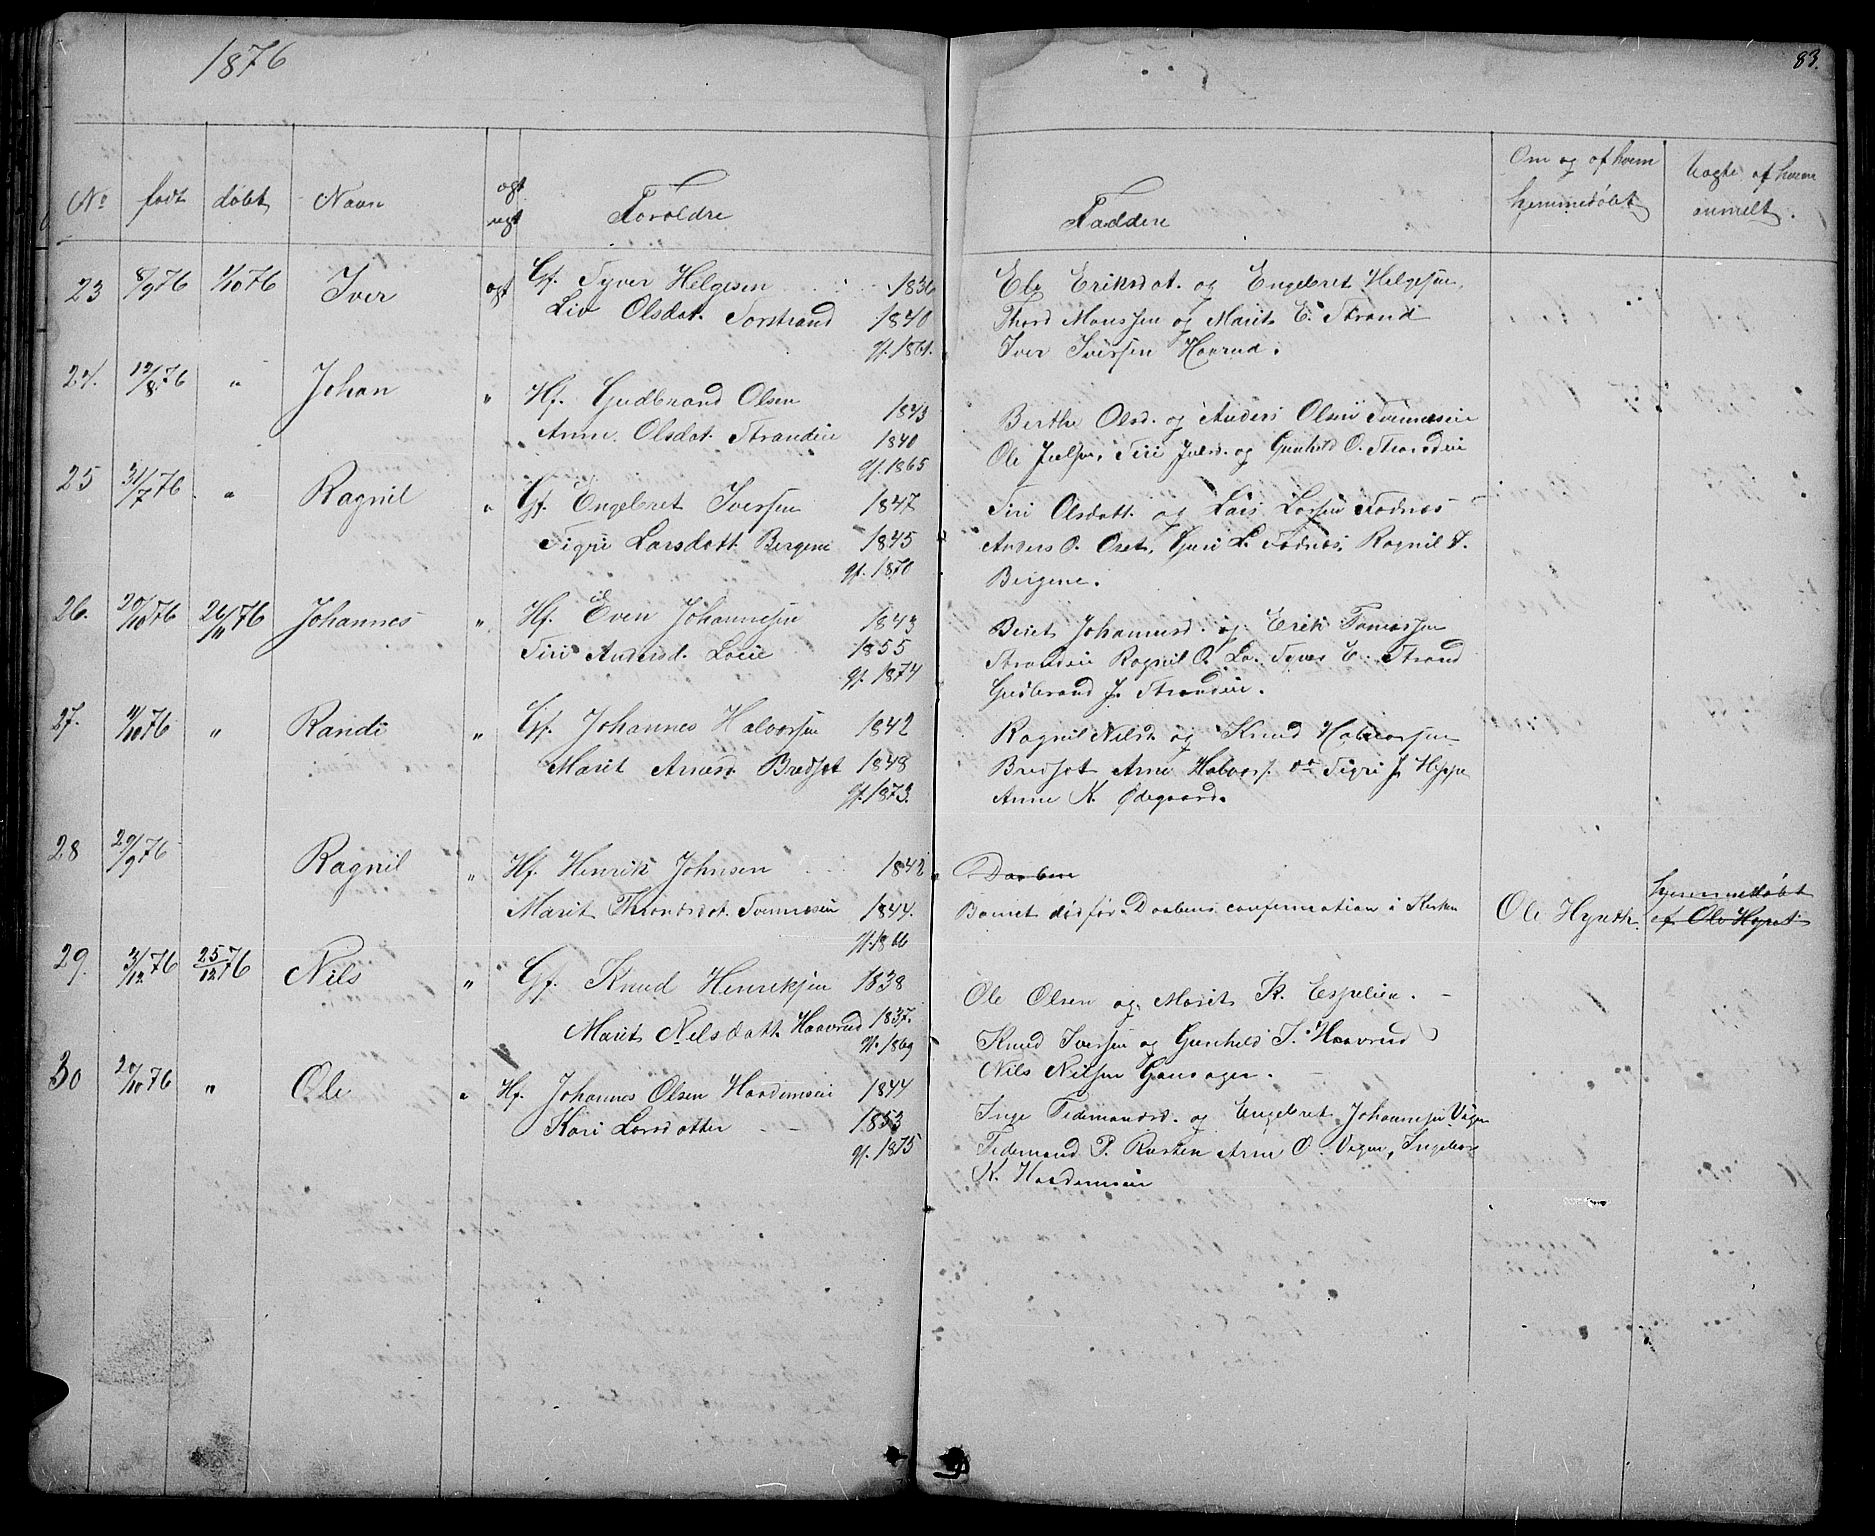 1876
83.
No født døbt Navn ægt uegt Forældre Faddere Om og af hvem hjemmedøbt af hvem anmelt.
23 8/9 76 1/10 76 Iver ægt Gf. Syver Helgesen 1836
Liv Olsdat. Sorstrand 1840
gf. 1861.
Eli Eriksdat. og Engebret Helgesen,
Thord Monssen og Marit E. Strand
Iver Iversen Haavrud.
24. 12/8 76 " Johan " Hf. Gudbrand Olsen 1843
Anne Olsdat. Strandeie 1840
gf. 1865
Berthe Olsd. og Anders Olsen
Ole Juelsen, Siri Juelsd. og Gunhild O. Strandeie
25 31/7 76 " Ragnil " Gf. Engebret Iversen 1847
Sigri Larsdatt. Bergene 1845
gf. 1870
Siri Olsdatt. og Lars Larsen Fodnæs
Anders O. Oset, Guri L. Fodnæs, Ragnil I.
Bergene.
26. 20/10 76 26/11 76 Johannes " Hf. Even Johannesen 1843
Siri Andersd. Loeie 1855
gf. 1874
Berit Johannesd. og Erik
Strandeie Ragnil O. Lo. Syver E. Strand
Gudbrand J. Strandeie.
27. 11/10 76 " Randi " Gf. Johannes Halvorsen 1842
Marit Arnesd. Bredset 1848
gf. 1873.
Ragnil Nilsd. og Knud Halvorsen
Bredset Arne Halvors. og Sigri J. Hippe
Anne K. Ødegaard.
28 29/9 76 Ragnil " Hf. Henrik Johnsen 1842
Marit Throndsdat. 1844.
gf. 1866
Daaben
Barnet død før Daabens confirmation i Kirken Ole Hyrth hjemmedøbt
af Ole Hyrt
29. 3/12 76 25/12 76 Nils " Gf. Knud Henriksen 1838
Marit Nilsdatt. Haavrud 1837.
gf. 1869
Ole Olsen og Marit K. Espelien.
Knud Iversen og Gunhild I. Haavrud
Nils Nilsen Gausager.
30 20/10 76 " Ole " Hf. Johannes Olsen Haademseie 1844
Kari Larsdatter 1853
gf. 1875
Inge Tidemandsd. og Engebret Johannesen Vigen
Tidemand P. Rusten Arne O. Vigen, Ingebor
K. Haademseie